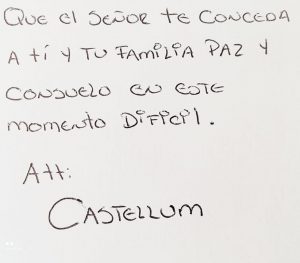 Que el SEÑOR te CONCEDA
A tí y TU FAMILIA PAZ Y
CONSUELO EN ESTE
momento DIFICIL.
Att:
CASTELLUM